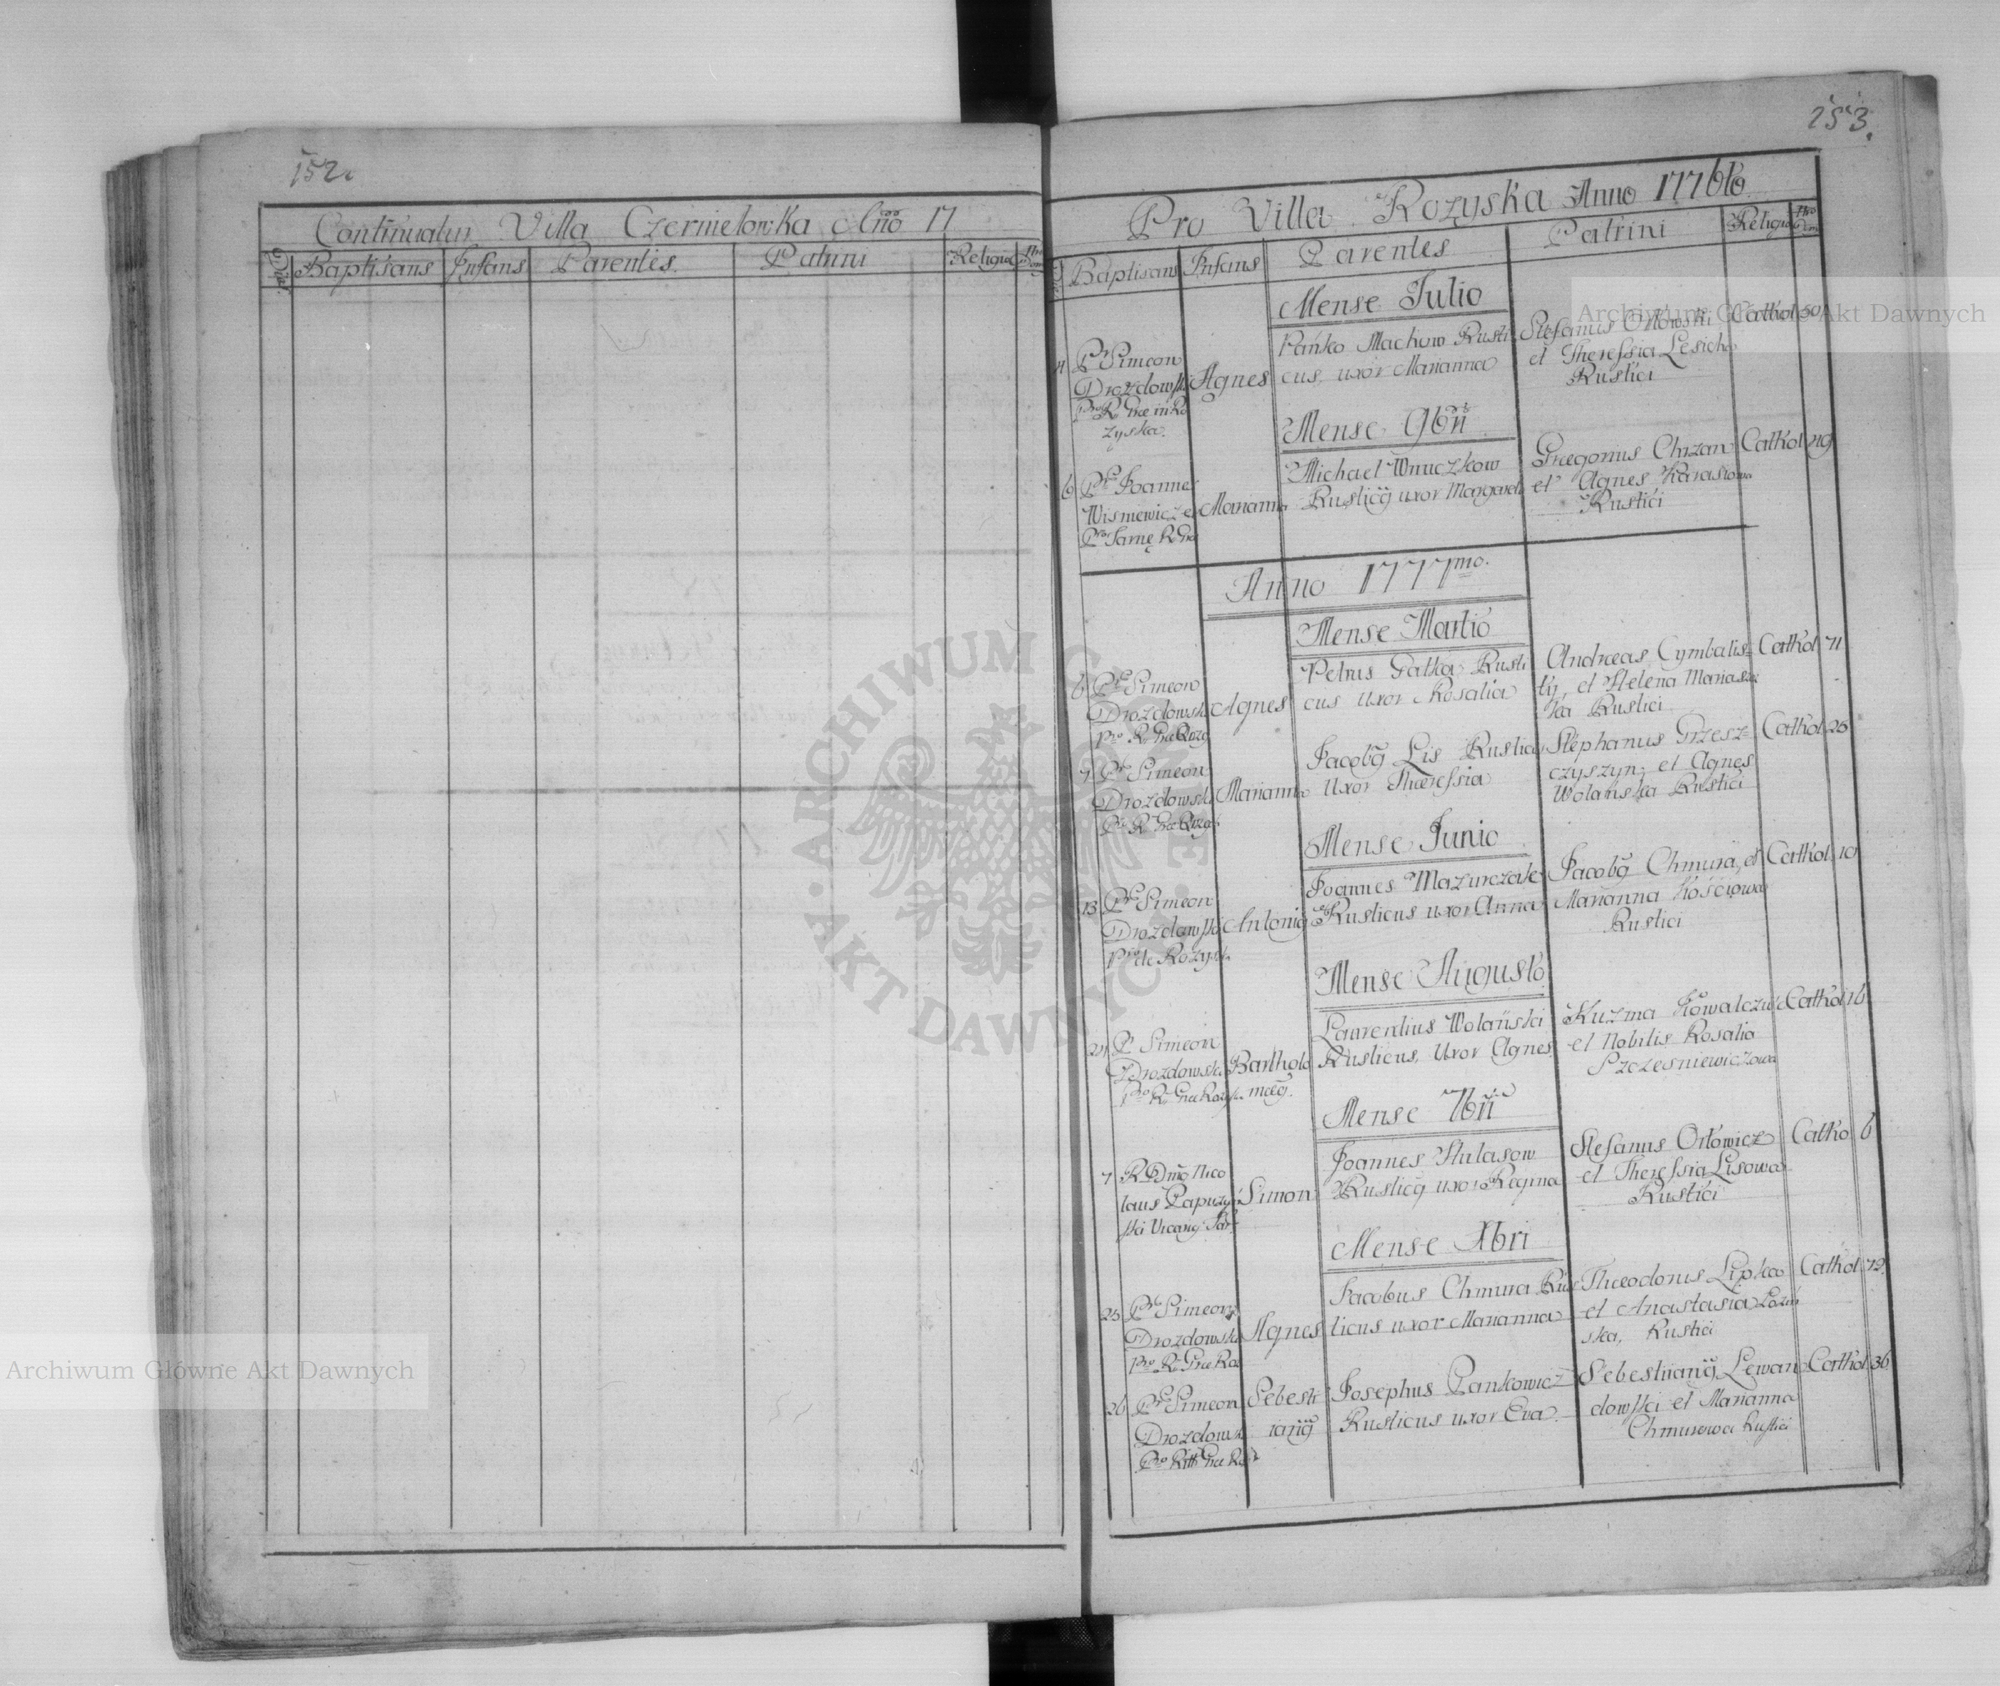 152.
Continuatur Villa Czernielowka Anno 17
Dies
Baptisans
Infans
Parentes
Patrini
Religio
Nro Dom
253.
Pro Villa Rozyska Anno 1776to
Baptisans
Infans
Parentes
Patrini
Religio
Nro Dom
Mense Julio
4
Pr Simeon
Drozdowski
Pro R. Grae in Ro
zyska.
Agnes
Pańko Mackow Rusti
cus, uxor Marianna
Stefanus Orłowski
et Theressia Lesicka
Rustici
Cathol
50
Mense 9bri
6
Pr Joannes
Wisniewicz
Marianna
Michael Wnuczkow
Rusticq uxor Margareta
Graegorius Chrzan
et Agnes Karasiowa
Rustici
Cathol
49
Anno 1777mo.
Mense Martio
6
Pr Simeon
Drozdowski
Pro R. Grae Rozy
Agnes
Petrus Gałka Rusti
cus Uxor Rosalia
Andreas Cymbalis
ty, et Helena Marias
ka Rustici
Cathol
71
7
Pr Simeon
Drozdowski
Pro R. Grae Rozys
Marianna
Jacobq Lis Rusticq
Uxor Theressia
Stephanus Grzesz
czyszyn, et Agnes
Wolańska Rustici
Cathol
25
Mense Junio
13
Pr Simeon
Drozdowski
Pro de Rozysk
Antoniq
Joannes Mazurczak
Rusticus uxor Anna
Jacobq Chmura, et
Marianna Kościowa
Rustici
Cathol
10
Mense Augusto
24
P Simeon
Drozdowski
Pro R. Grae Rozys
Bartholo
maeq.
Laurentius Wolański
Rusticus, Uxor Agnes
Kuzma Kowalczuk
et Nobilis Rosalia
Szczesniewiczowa
Cathol
16
Mense 7bri
7
R Dnus Nico
laus Papuzyń
ski Vicariq
Simon
Joannes Hulasow
Rusticq uxor Regina
Stefanus Orłowicz
et Theressia Lisowa
Rustici
Catho
6
Mense Xbri
25
Pr Simeon
Drozdowski
Pro R. Grae Roz
Agnes
Jacobus Chmura Rus
ticus uxor Marianna
Theodorus Lipka
et Anastasia Łoziń
ska, Rustici
Cathol
72.
26
Pr Simeon
Drozdowski
Pro Ritt Grae Roz
Sebesti
aniq
Josephus Pankowicz
Rusticus uxor Eva
Sebestianiq Lewan
dowski et Marianna
Chmurowa Rustici
Cathol
36
Archiwum Główne Akt Dawnych
Archiwum Główne Akt Dawnych
ARCHIWUM GŁÓWNE · AKT DAWNYCH ·